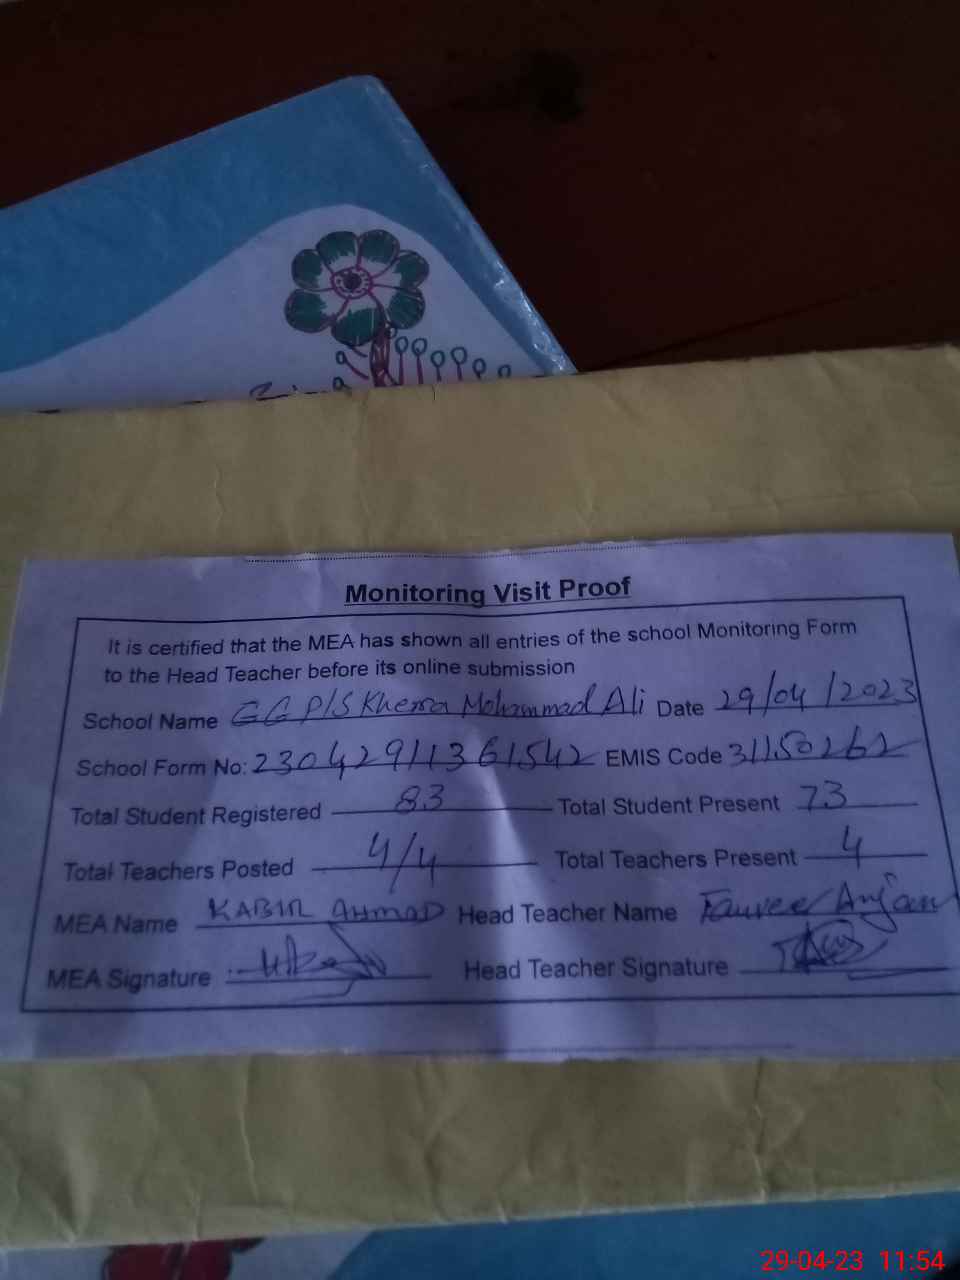 Monitoring Visit Proof
It is certified that the MEA has shown all entries of the school Monitoring Form
to the Head Teacher before its online submission
School Name GGP/S Kherra Mohammad Ali Date 29/04/2023
School Form No: 23042911361542 EMIS Code 31150262
Total Student Registered 83 Total Student Present 73
Total Teachers Posted 4/4 Total Teachers Present 4
MEA Name KABIR AHMAD Head Teacher Name Anjam
MEA Signature Head Teacher Signature
29-04-23 11:54